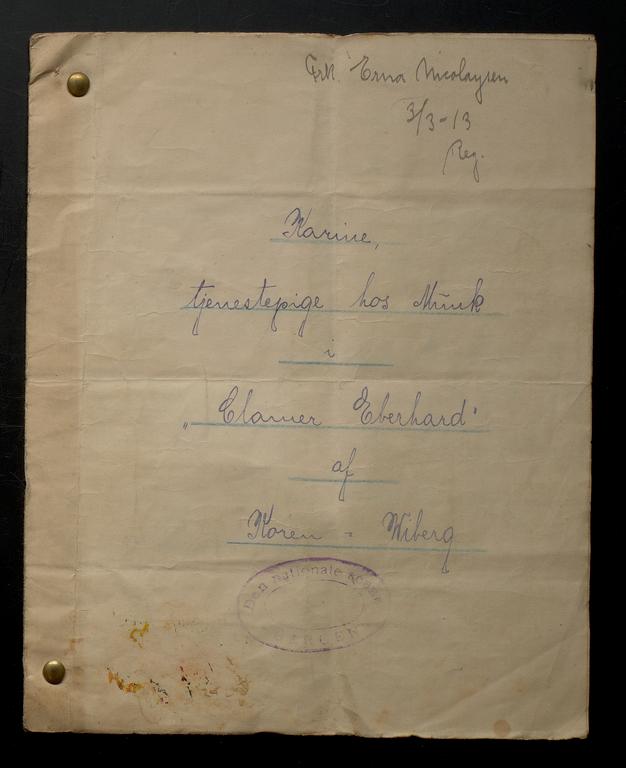 Frk. Erna Nicolaysen
3/3-13
Reg.
Karine,
tjenestepige hos Münk
i
„Clamer Eberhard"
af
Koren = Wiberg
Den nationale scene
BERGEN